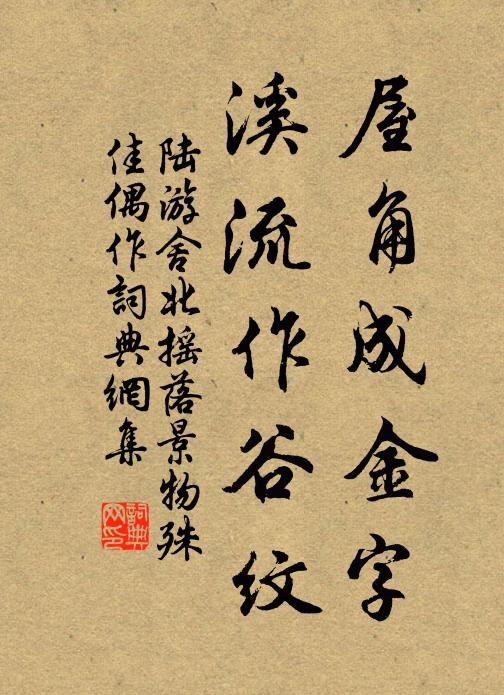 屋角成金字
溪流作谷紋
陆游舍北摇落景物殊
佳偶作詞典網集
詞典網印